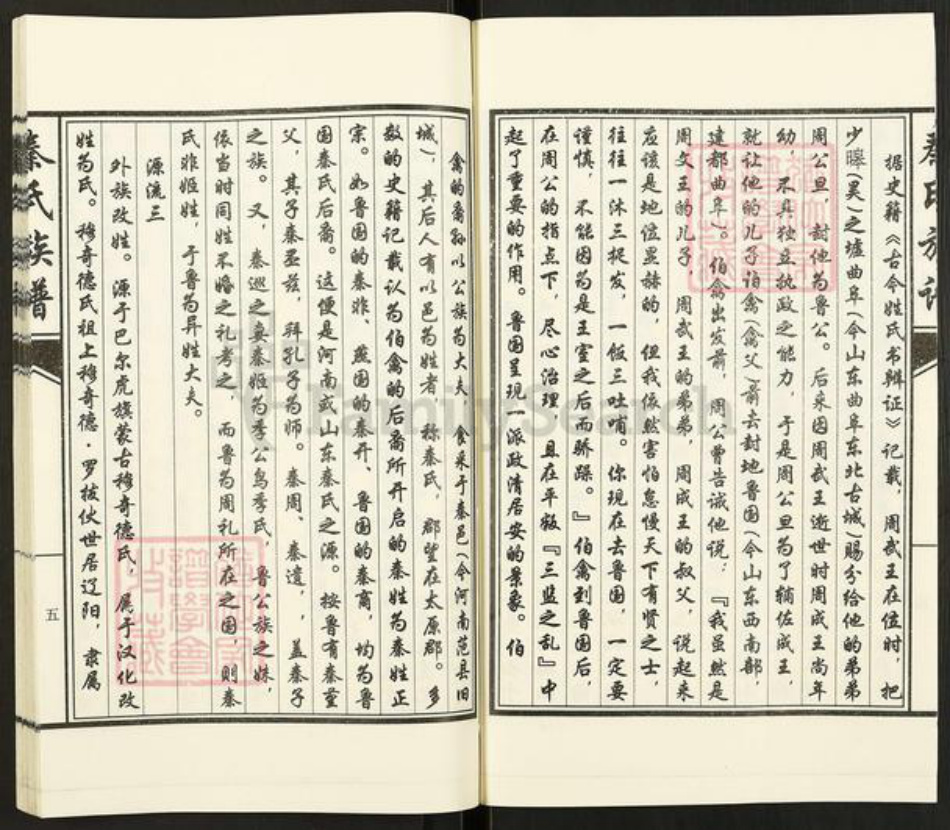 据史籍《古今姓氏书辩证》记载，周武王在位时，把
少皞（昊）之墟曲阜（今山东曲阜东北古城）赐分给他的弟弟
周公旦，封他为鲁公。后来因周武王逝世时周成王尚年
幼，不具独立执政之能力，于是周公旦为了辅佐成王，
就让他的儿子伯禽（禽父）前去封地鲁国（今山东西南部，
建都曲阜）。伯禽出发前，周公曾告诫他说：『我虽然是
周文王的儿子，周武王的弟弟，周成王的叔父，说起来
应该是地位显赫的，但我依然害怕怠慢天下有贤之士，
往往一沐三捉发，一饭三吐哺。你现在去鲁国，一定要
谨慎，不能因为是王室之后而骄躁。』伯禽到鲁国后，
在周公的指点下，尽心治理，且在平叛『三监之乱』中
起了重要的作用。鲁国呈现一派政清居安的景象。伯
禽的裔孙以公族为大夫，食采于秦邑（今河南范县旧
城），其后人有以邑为姓者，称秦氏，郡望在太原郡。多
数的史籍记载认为伯禽的后裔所开启的秦姓为秦姓正
宗。如鲁国的秦非、燕国的秦开、鲁国的秦商，均为鲁
国秦氏后裔。这便是河南或山东秦氏之源。按鲁有秦堇
父，其子秦丕兹，拜孔子为师。秦周、秦遗，，盖秦子
之族。又，秦巡之妾秦姬为季公鸟季氏，鲁公族之妹，
依当时同姓不婚之礼考之，而鲁为周礼所在之国，则秦
氏非姬姓，于鲁为异姓大夫。
源流三
外族改姓。源于巴尔虎旗蒙古穆奇德氏，属于汉化改
姓为氏。穆奇德氏祖上穆奇德·罗拔伏世居辽阳，隶属
秦氏族谱
五
FamilySearch